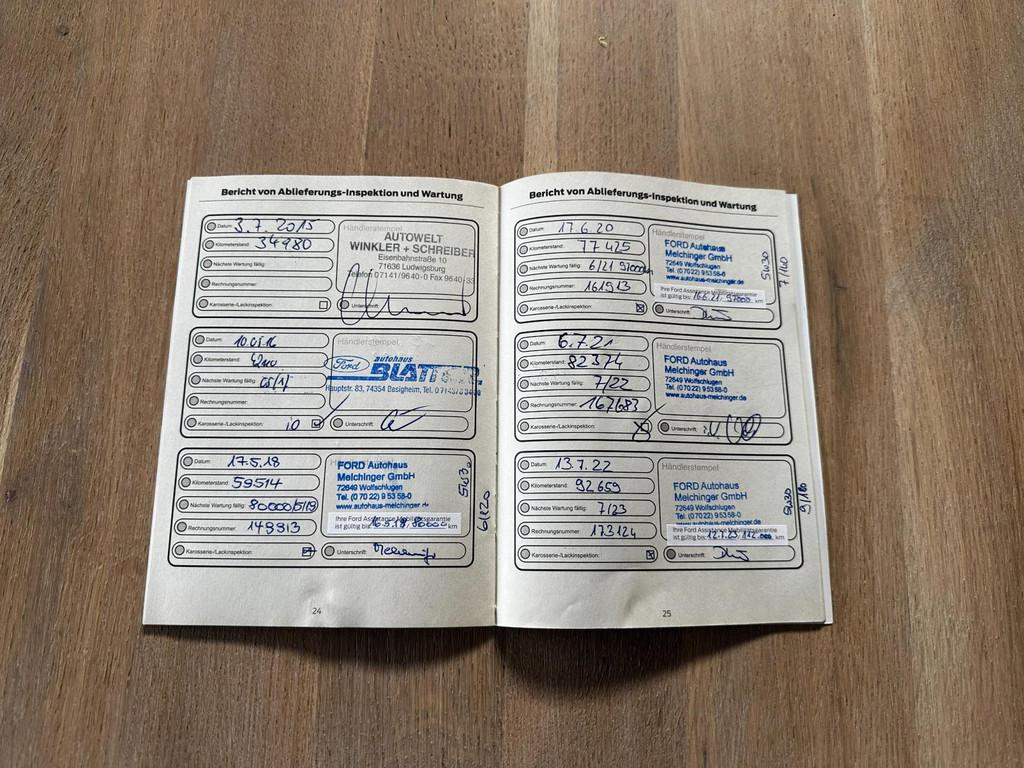 Bericht von Ablieferungs-Inspektion und Wartung
Datum: 3.7.2015
Kilometerstand: 34980
Nächste Wartung fällig:
Rechnungsnummer:
Karosserie-/Lackinspektion:
Händlerstempel
AUTOWELT
WINKLER + SCHREIBER
Eisenbahnstraße 10
71636 Ludwigsburg
Telefon 07141/9640-0 Fax 9640-33
Unterschrift:
Datum:
Kilometerstand:
Nächste Wartung fällig:
Rechnungsnummer:
Karosserie-/Lackinspektion: iO
Händlerstempel
Ford autohaus
Hauptstr. 83, 74354 Besigheim, Tel.
Unterschrift:
Datum: 17.5.18
Kilometerstand: 59514
Nächste Wartung fällig: 80000/5/19
Rechnungsnummer: 149913
Karosserie-/Lackinspektion:
Händlerstempel
FORD Autohaus
Melchinger GmbH
72649 Wolfschlugen
Tel. (0 70 22) 9 53 58-0
www.autohaus-melchinger.de
Ihre Ford Assistance Mobilitätsgarantie
ist gültig bis: km
Unterschrift:
5W30
24
Bericht von Ablieferungs-Inspektion und Wartung
Datum: 17.6.20
Kilometerstand: 77425
Nächste Wartung fällig: 6/21 97000km
Rechnungsnummer: 161913
Karosserie-/Lackinspektion:
Händlerstempel
FORD Autohaus
Melchinger GmbH
72649 Wolfschlugen
Tel. (0 70 22) 9 53 58-0
www.autohaus-melchinger.de
Ihre Ford Assistance Mobilitätsgarantie
ist gültig bis: 16.6.21 97000 km
Unterschrift:
5W30
7/140
Datum: 6.7.21
Kilometerstand: 82374
Nächste Wartung fällig: 7/22
Rechnungsnummer: 167683
Karosserie-/Lackinspektion:
Händlerstempel
FORD Autohaus
Melchinger GmbH
72649 Wolfschlugen
Tel. (0 70 22) 9 53 58-0
www.autohaus-melchinger.de
Unterschrift:
Datum: 13.7.22
Kilometerstand: 92659
Nächste Wartung fällig: 7/23
Rechnungsnummer: 173124
Karosserie-/Lackinspektion:
Händlerstempel
FORD Autohaus
Melchinger GmbH
72649 Wolfschlugen
Tel. (0 70 22) 9 53 58-0
www.autohaus-melchinger.de
Ihre Ford Assistance Mobilitätsgarantie
ist gültig bis: 12.7.23 112.000 km
Unterschrift:
5W30
9/180
25